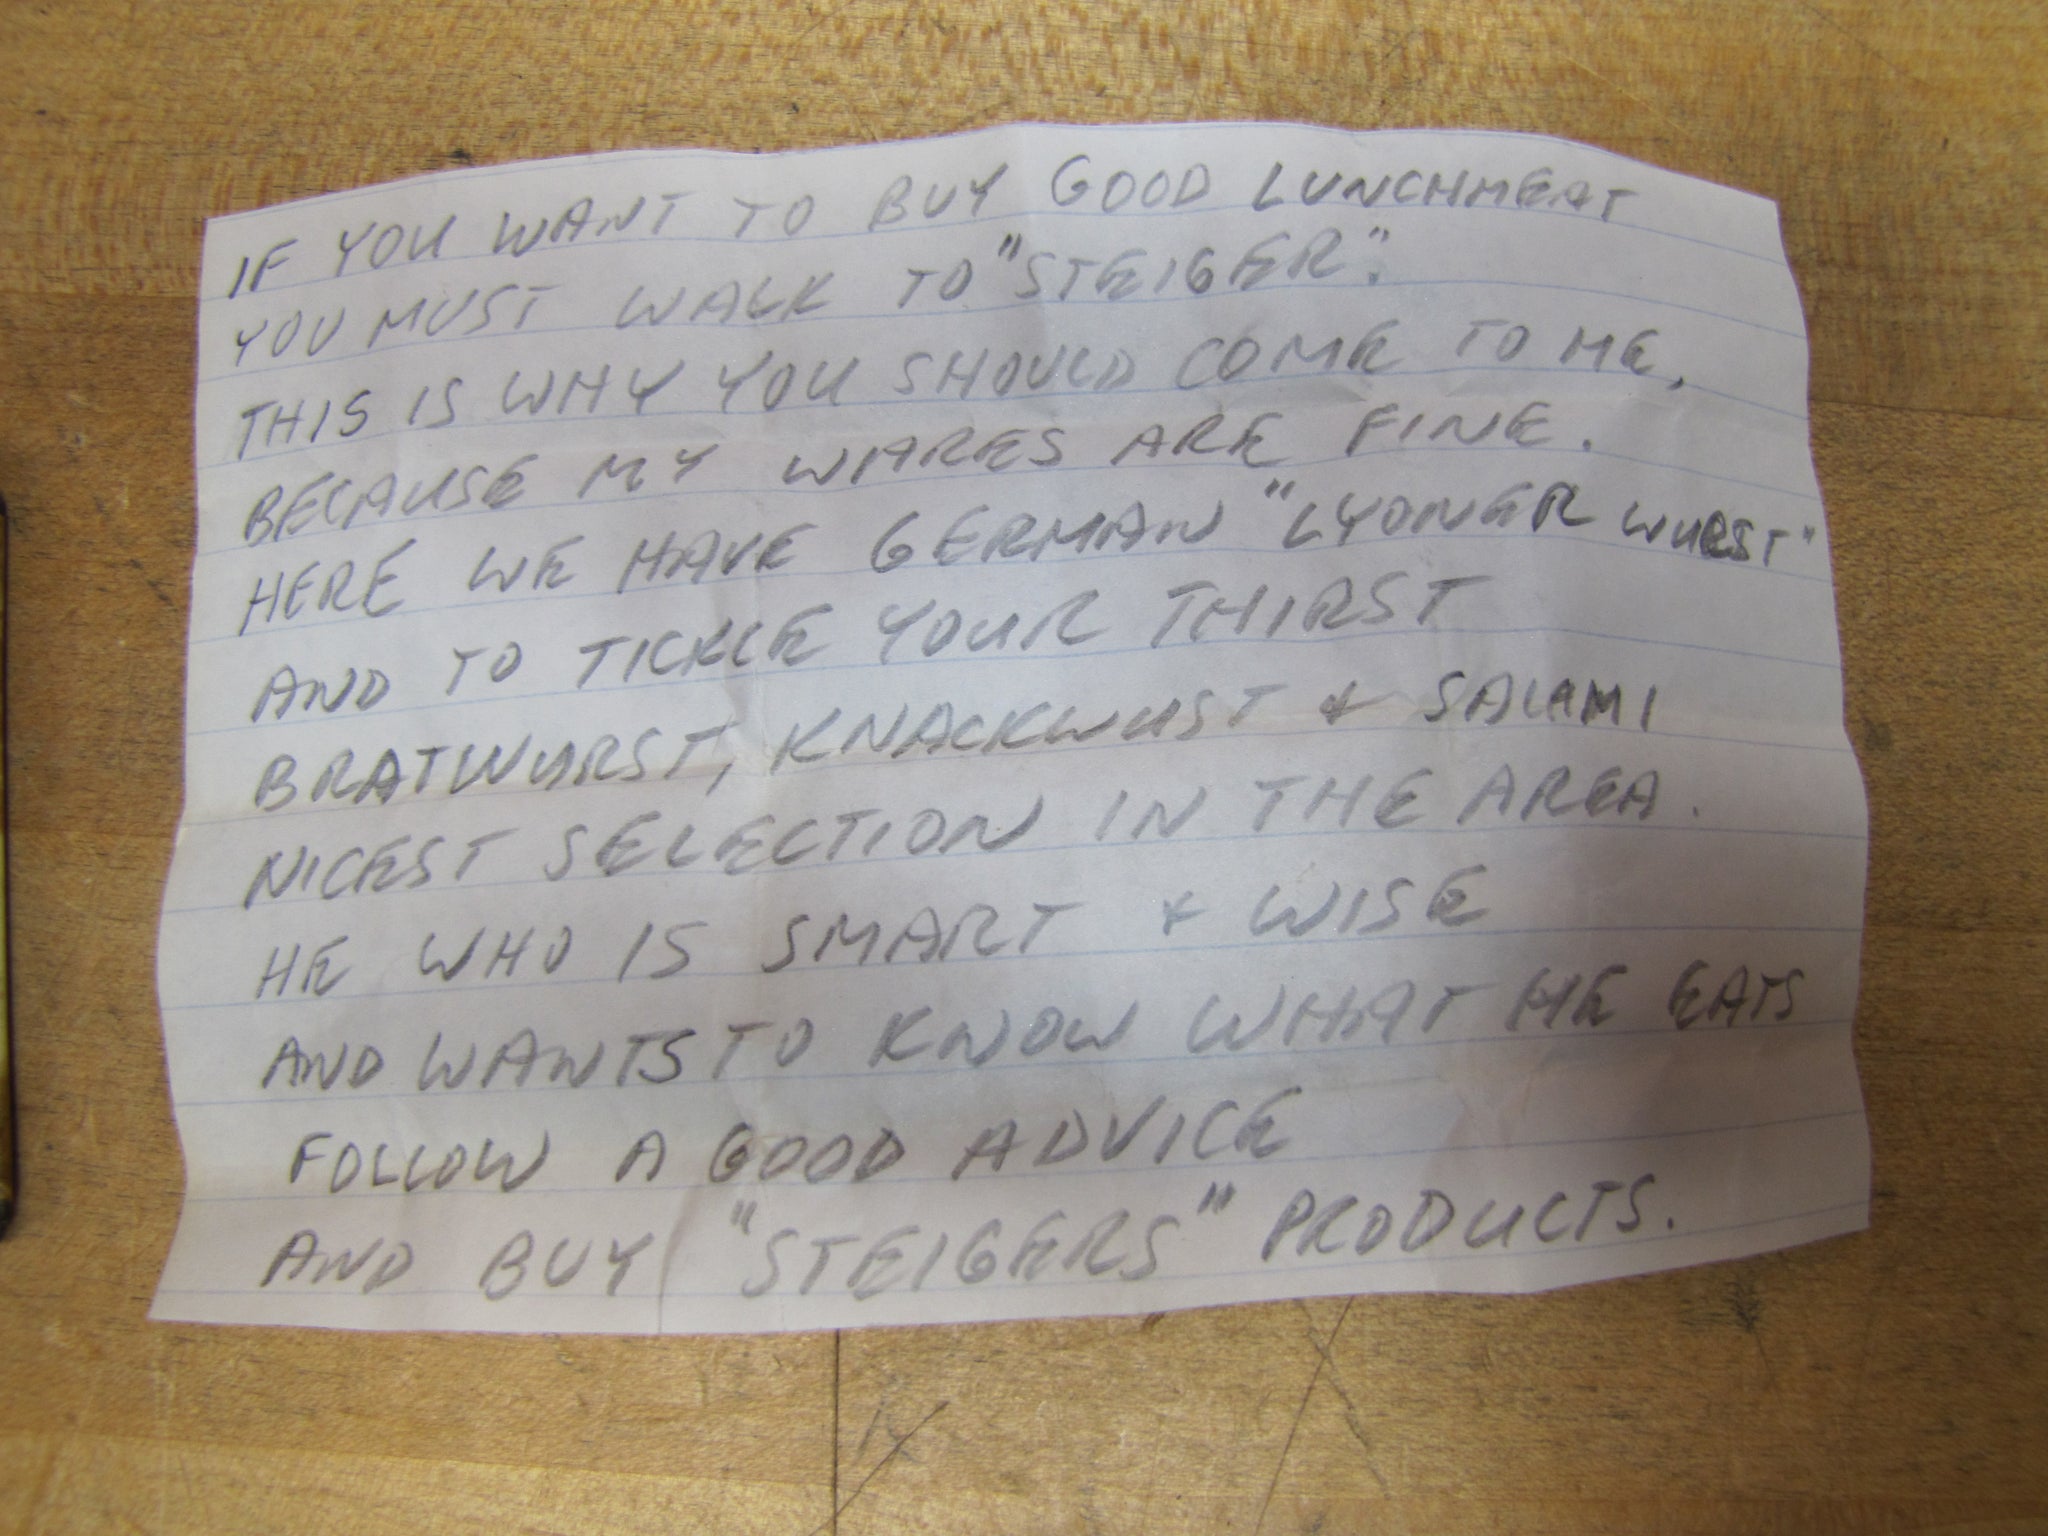 IF YOU WANT TO BUY GOOD LUNCHMEAT
YOU MUST WALK TO "STEIGER".
THIS IS WHY YOU SHOULD COME TO ME,
BECAUSE MY WARES ARE FINE.
HERE WE HAVE GERMAN "LYONER WURST"
AND TO TICKLE YOUR THIRST
BRATWURST, KNACKWUST & SALAMI
NICEST SELECTION IN THE AREA.
HE WHO IS SMART & WISE
AND WANTS TO KNOW WHAT HE EATS
FOLLOW A GOOD ADVICE
AND BUY "STEIGERS" PRODUCTS.